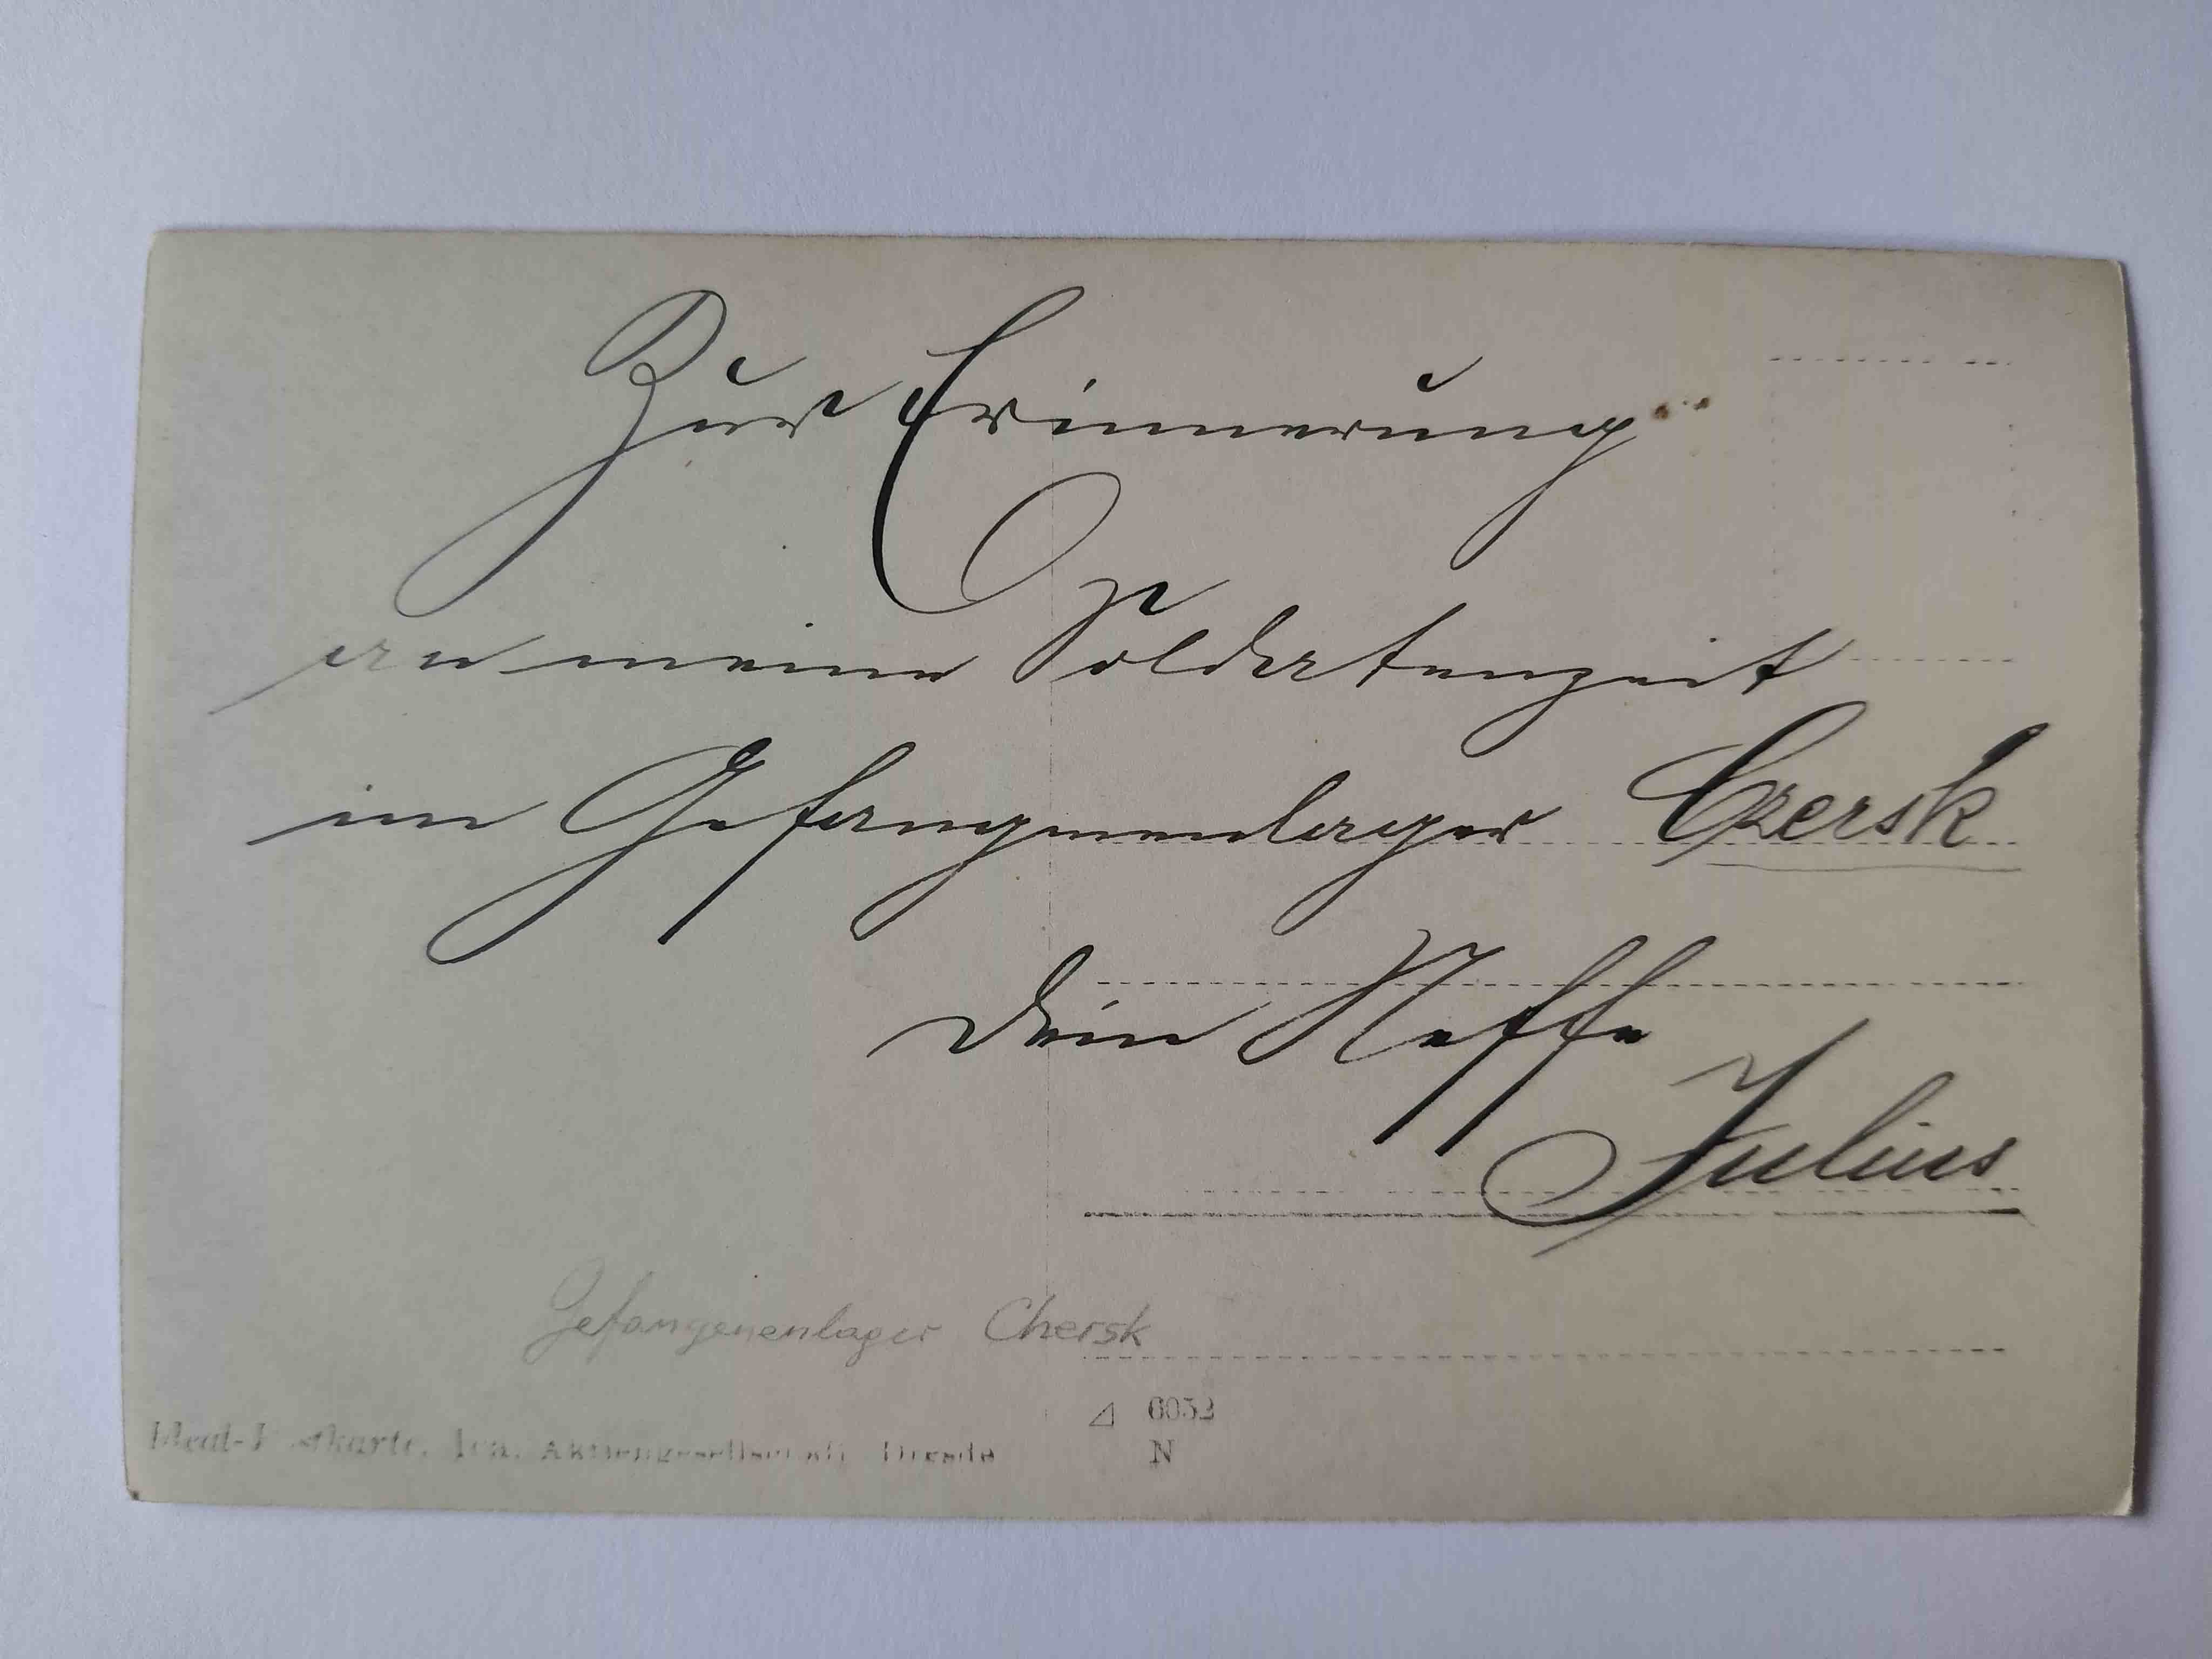 Zur Erinnerung
an meine Soldatenzeit
im Gefangenenlager Czersk
Dein Neffe
Julius
Gefangenenlager Chersk
6052
N
Ideal-Postkarte. Ica. Aktiengesellschaft Dresde